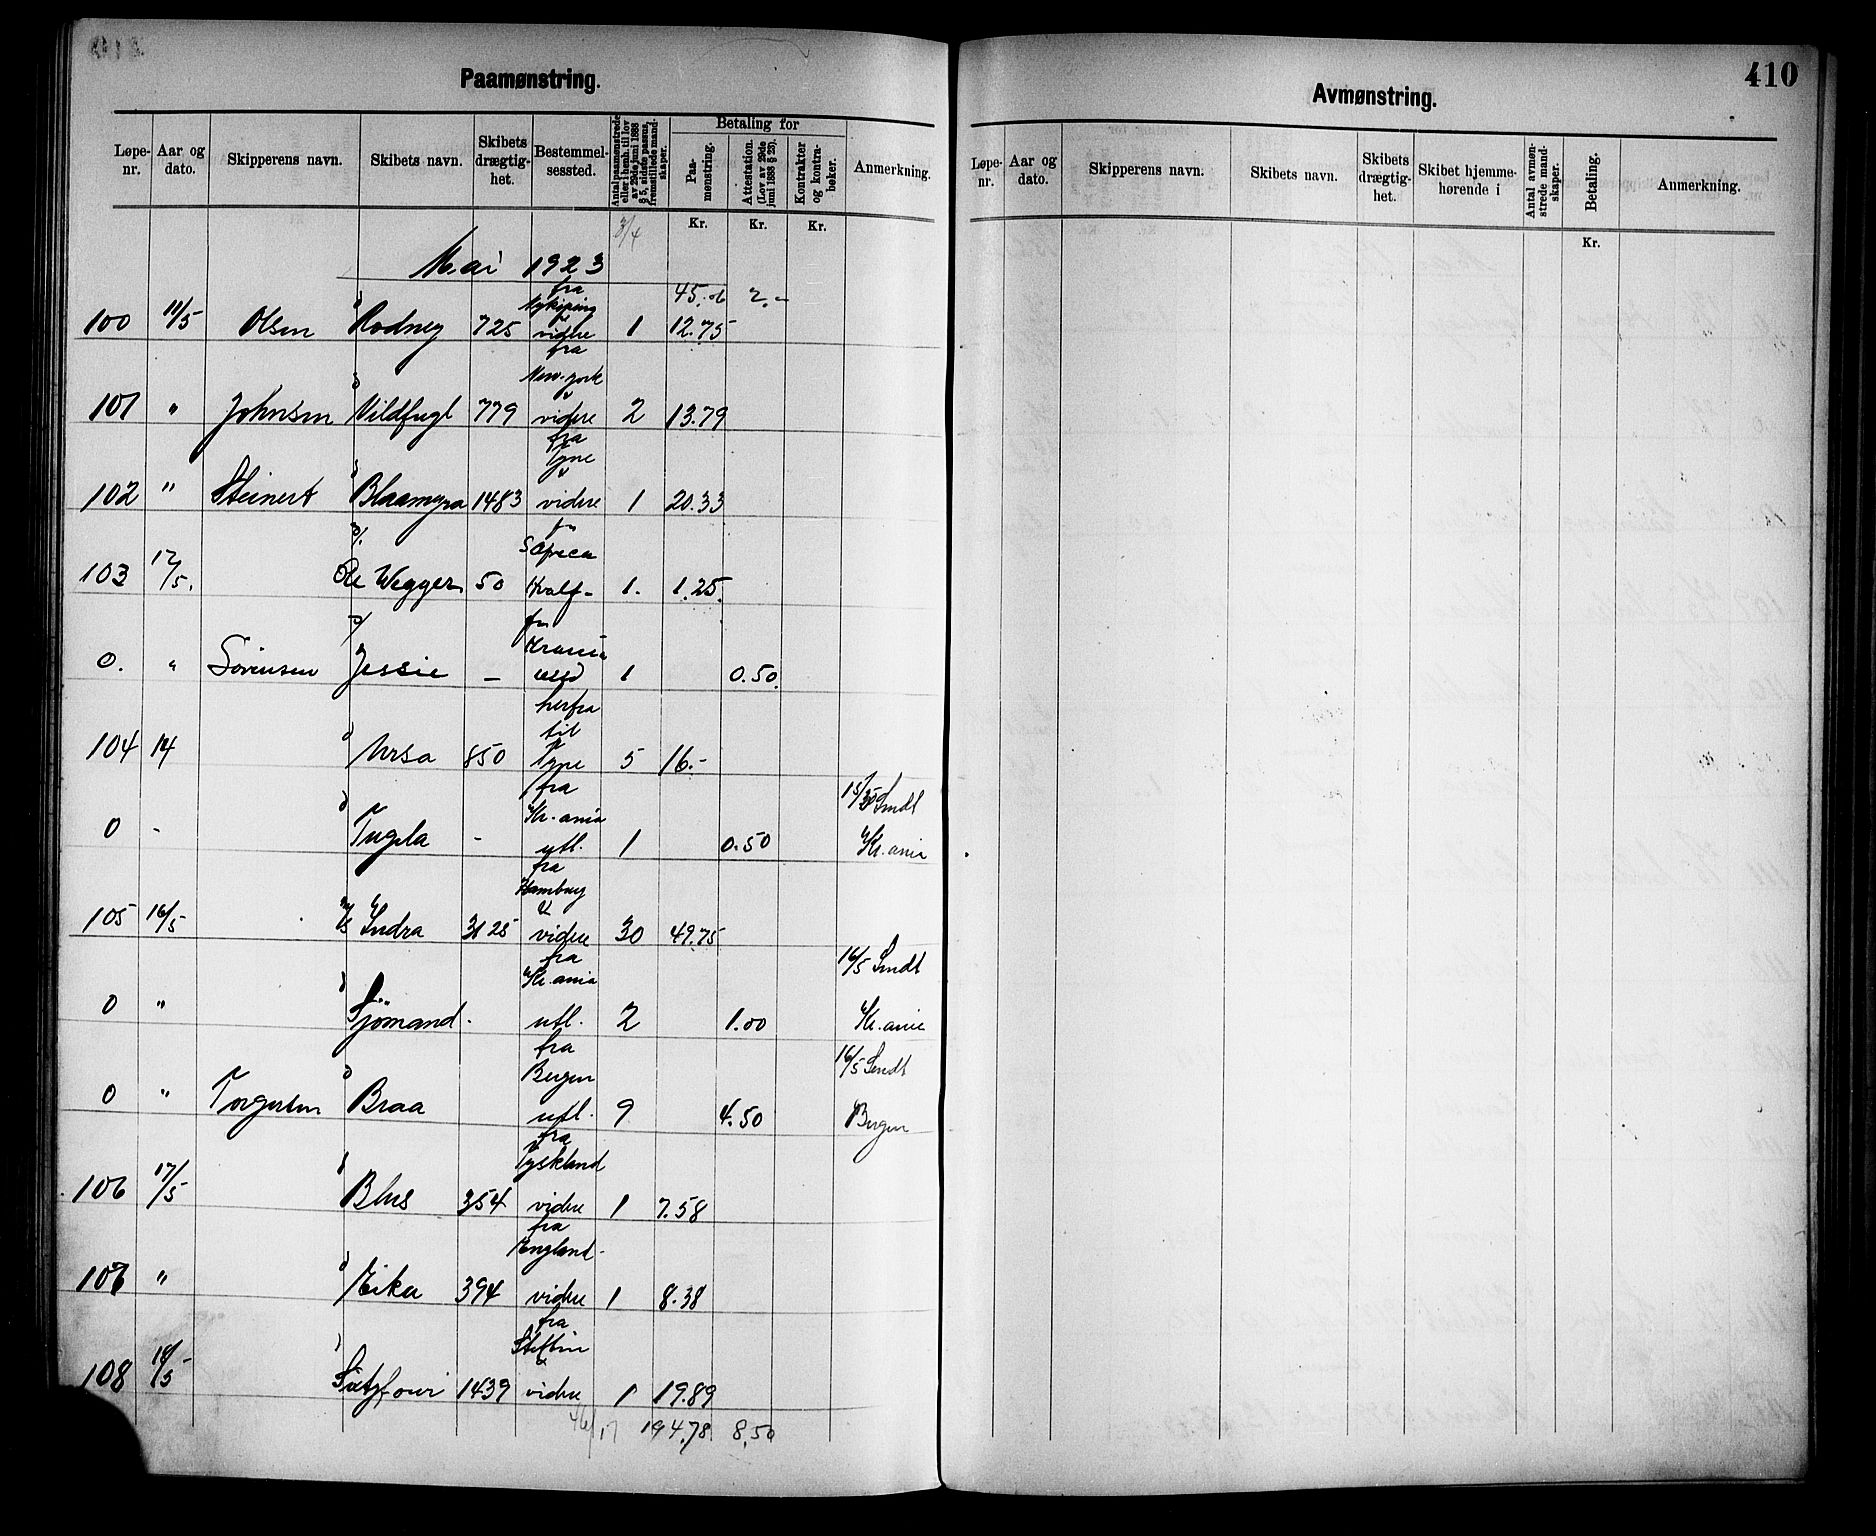 Paamønstring.
Løpe-nr. Aar og dato. Skipperens navn. Skibets navn. Skibets drægtig-het. Bestemmel-sessted. Antal paamønstrede eller i henh. til lov av 29de juni 1888 § 5, sidste passus, fremstillede mand-skaper. Betaling for Paa-mønstring. Attestation. (Lov av 29de juni 1888 § 29). Kontrakter og kontra-bøker. Anmerkning.
3/4 Kr. Kr. Kr.
Mai 1923
45.06 2.-
100 11/5 Olsen Rodney 725 fra Nykiping videre 1 12.75
101 " Johnsen Vildfugl 779 fra New-york videre 2 13.79
102 " Steinert Blaamyra 1483 fra Tyne videre 1 20.33
103 12/5. Ole Wegger 50 Hvalf- 1. 1.25.
0. " Sörensen Jessie - 1 0.50.
104 14 Ursa 850 herfra til Tyne 5 16.-
0 - Tugela - fra Kr.ania utl. 1 0.50 15/5 Sendt Kr.ania
105 16/5 Indra 3125 fra Hamburg & videre 30 49.75
0 " Sjömand. fra Kr.ania utl. 2 1.00 16/5 Sendt Kr.ania
0 " Torgersen Braa fra Bergen utl. 9 4.50 16/5 Sendt Bergen
106 17/5 Blus 354 fra Tyskland videre 1 7.58
107 " Eika 394 fra England- videre 1 8.38
108 18/5 Sixtyfour 1439 fra Stettin & videre 1 19.89
46/17 194.78 8.50
410
Avmønstring.
Løpe-nr. Aar og dato. Skipperens navn. Skibets navn. Skibets drægtig-het. Skibet hjemme-hørende i Antal avmøn-strede mand-skaper. Betaling. Anmerkning.
Kr.